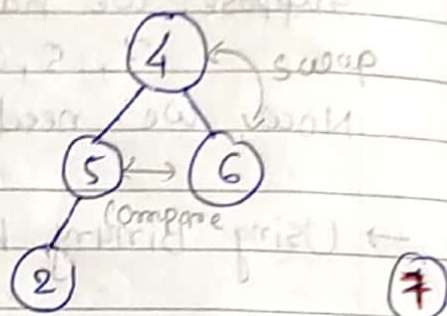 4
swap
5
6
Compare
2
7